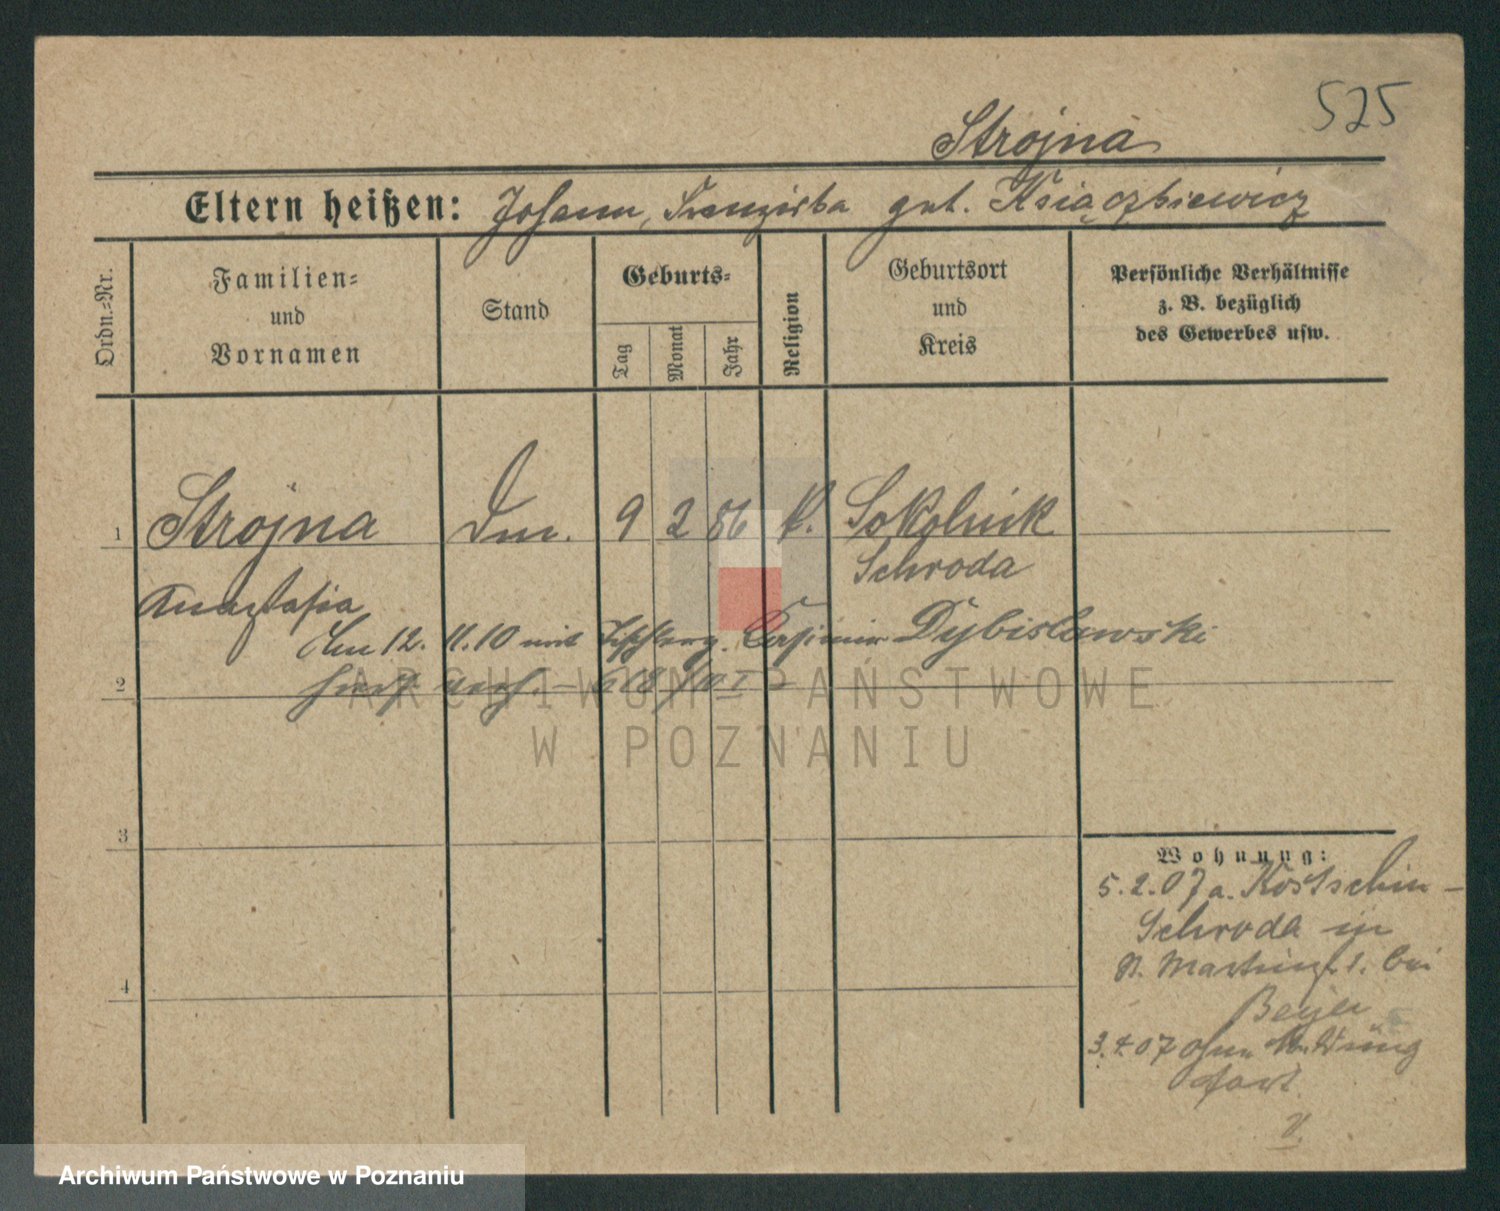 525
Strojna
Eltern heißen: Johann, Franziska geb. Książkiewicz
Ordn.-Nr.
Familien-
und
Vornamen
Stand
Geburts-
Tag
Monat
Jahr
Religion
Geburtsort
und
Kreis
Persönliche Verhältnisse
z. B. bezüglich
des Gewerbes usw.
1 Strojna Dm. 9 2 86 K. Sokolnik
Schroda
Anastasia
Am 12. 11. 10 mit Casimir Dybislawski
2
ARCHIWUM PAŃSTWOWE
W POZNANIU
3
4
Wohnung:
5.2.07 a. Kostschin-
Schroda in
St. Martinstr. bei
Beyer
3.4.07 ohne Meldung
fort.
V.
Archiwum Państwowe w Poznaniu